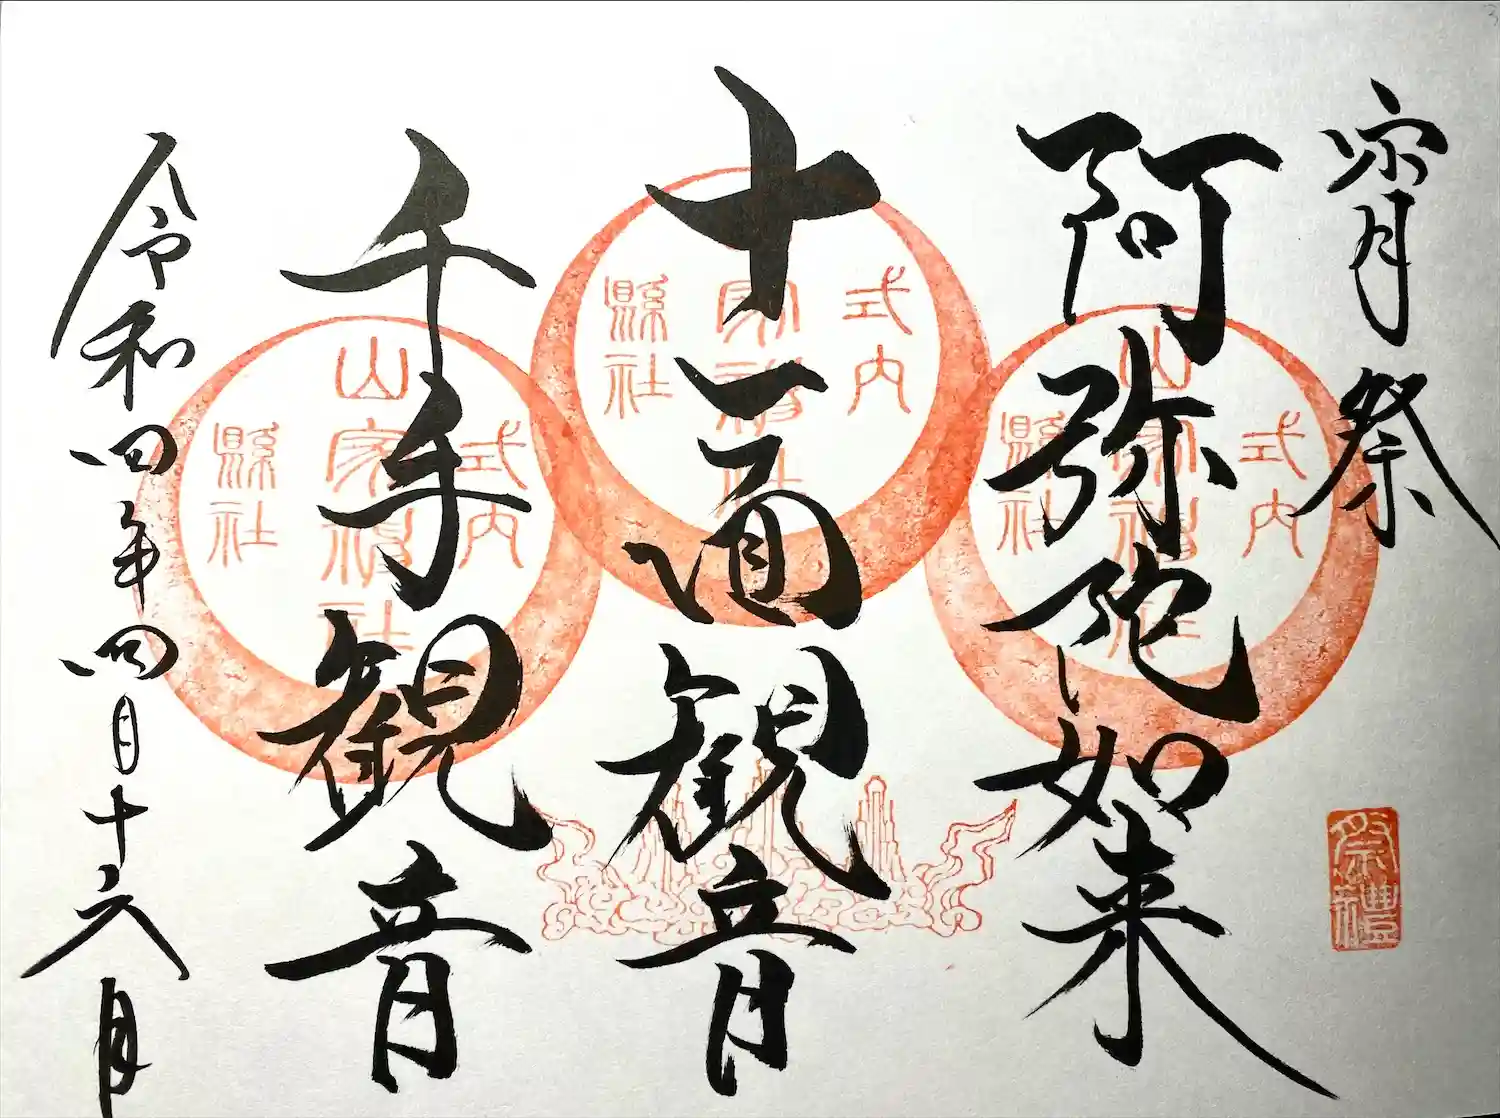 宵祭
阿弥陀如来
十一面観音
千手観音
令和四年四月十六日
式内
山家神社
縣社
式内
山家神社
縣社
式内
山家神社
縣社
祭禮